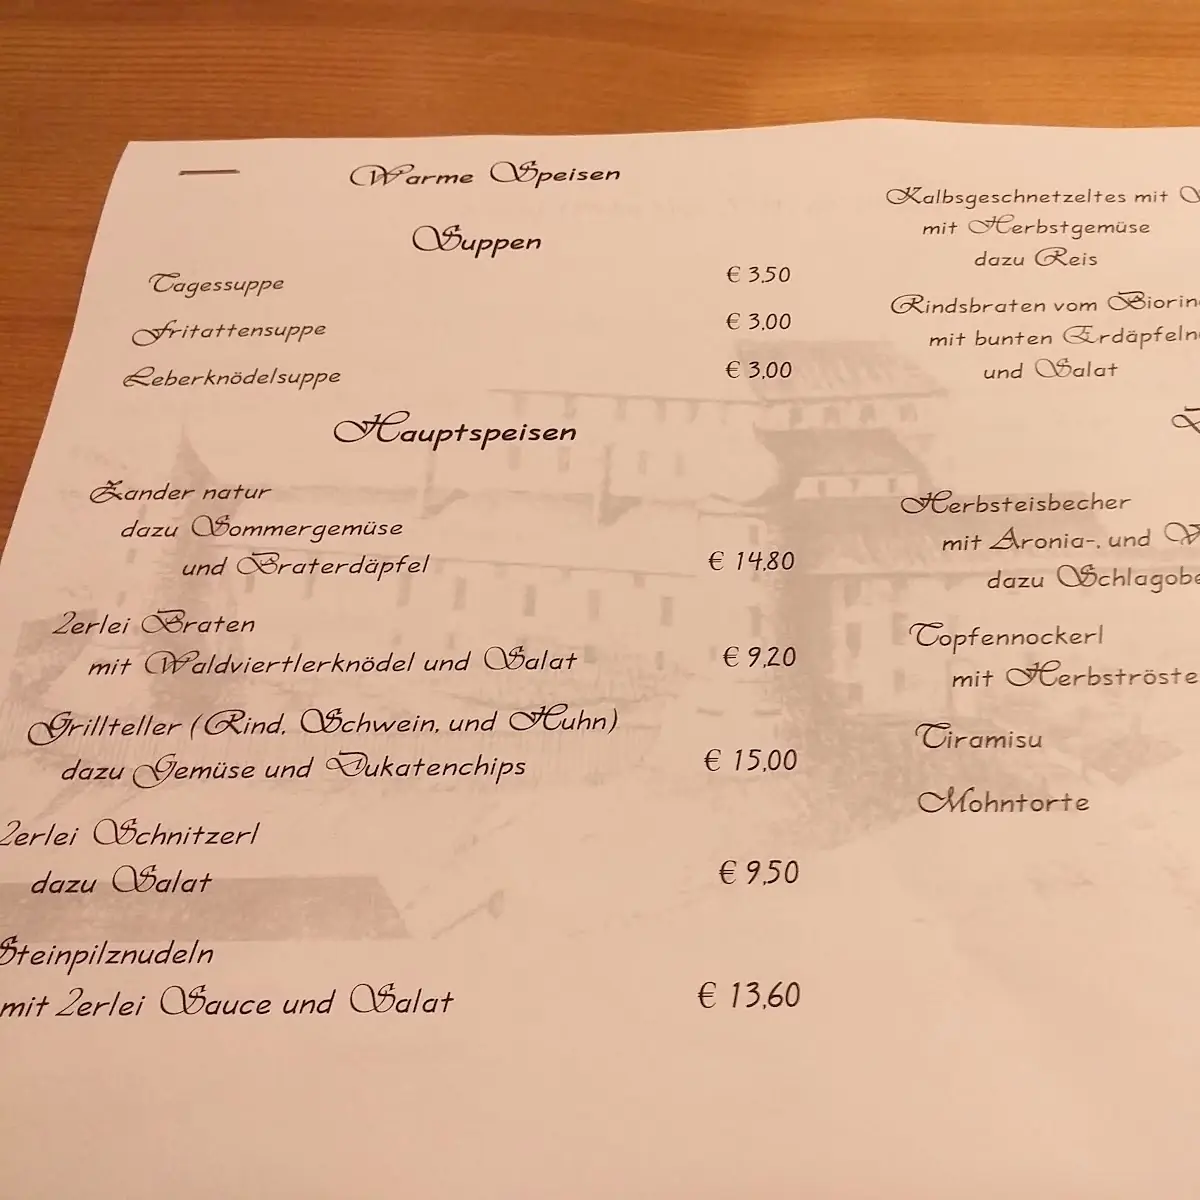 Warme Speisen
Suppen
Tagessuppe € 3,50
Fritattensuppe € 3,00
Leberknödelsuppe € 3,00
Hauptspeisen
Zander natur
dazu Sommergemüse
und Braterdäpfel € 14,80
2erlei Braten
mit Waldviertlerknödel und Salat € 9,20
Grillteller (Rind, Schwein, und Huhn)
dazu Gemüse und Dukatenchips € 15,00
2erlei Schnitzerl
dazu Salat € 9,50
Steinpilznudeln
mit 2erlei Sauce und Salat € 13,60
Kalbsgeschnetzeltes mit
mit Herbstgemüse
dazu Reis
Rindsbraten vom
mit bunten
und Salat
Herbsteisbecher
mit Aronia-, und
dazu
Topfennockerl
mit
Tiramisu
Mohntorte